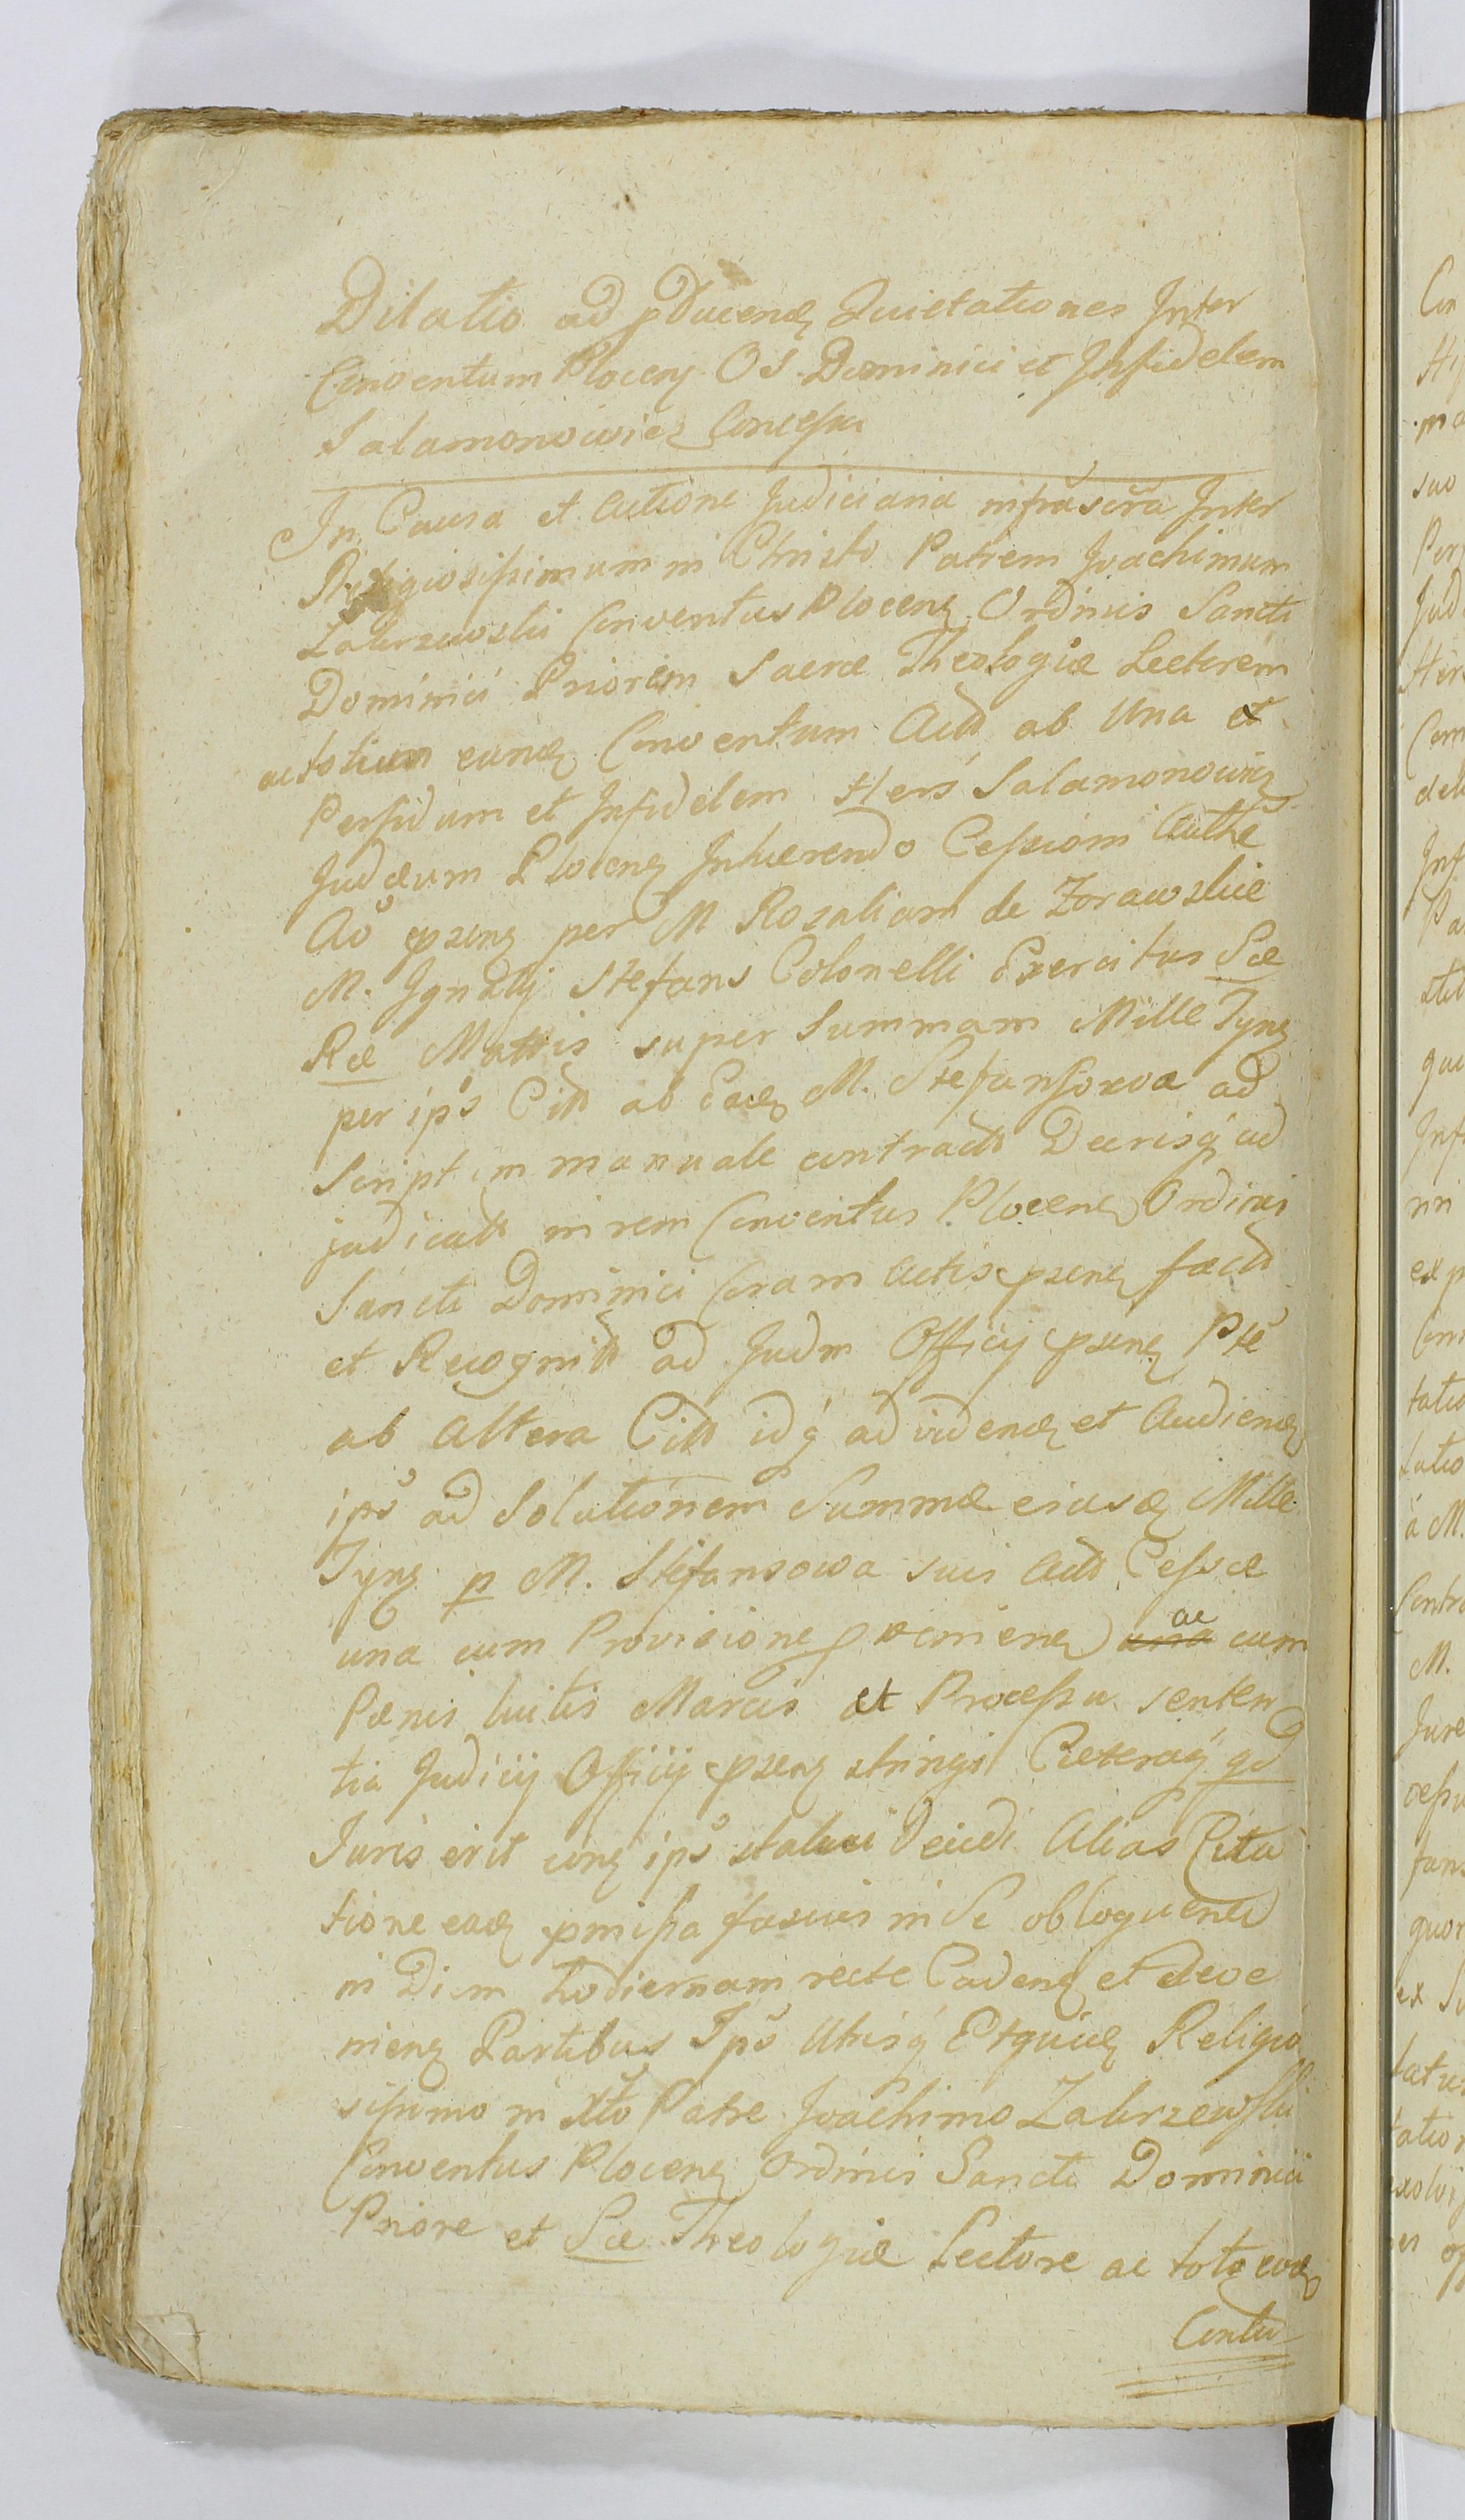 Dilatio ad pducenɖ Quietationes Inter
Conventum Plocenʒ O S Dominici et Infidelem
Salamonowicz Concessa
In Causa et Actione Judiciaria infrascra Inter
Religiosissimum in Christo Patrem Joachimum
Zakrzewski Conventus Plocenʒ Ordinis Sancti
Dominici Priorem Sacræ Theologiæ Lectorem
ac totum eunɖ Conventum Actt ab Una et
Perfidum et Infidelem Herś Salamonowicz
Judæum Plocenʒ Inhærendo Cessioni Authæ
Ao psenʒ per M Rosaliam de Zorawskie
M. Ignatij Stefans Colonelli Exercitus Sæ
Ræ Mattis super Summam Mille Tynʒ
per ips Citt ab Eaɖ M. Stefansowa ad
Scriptum manuale contractt Decrisq ad
judicatt in rem Conventus Plocenʒ Ordinis
Sancti Dominici Coram Actis psenʒ factt
et Recognitt ad Judm Officij psenʒ Pte
ab Altera Citt idq ad videnɖ et Audienɖ
ips ad Solutionem Summæ eiusɖ Mille
Tynʒ p M. Stefansowa suis Actt Cessæ
una cum Provisione pvenienʒ una ac cum
Pænis luitis Marcis et Processu senten
tia Judicij Officij psenʒ stringi Cæteraq qd
Juris erit cirq ips statui Decidi Alias Cita
tione eaɖ pmissa fusius in Se obloquenʒ
in Diem hodiernam recte Cadenʒ et Adve
nienʒ Partibus Ips Utrisq Etquiɖ Religio
sissimo in Xto Patre Joachimo Zakrzewski
Conventus Plocenʒ Ordinis Sancti Dominici
Priore et Sæ Theologiæ Lectore ac toto eoɖ
Contu